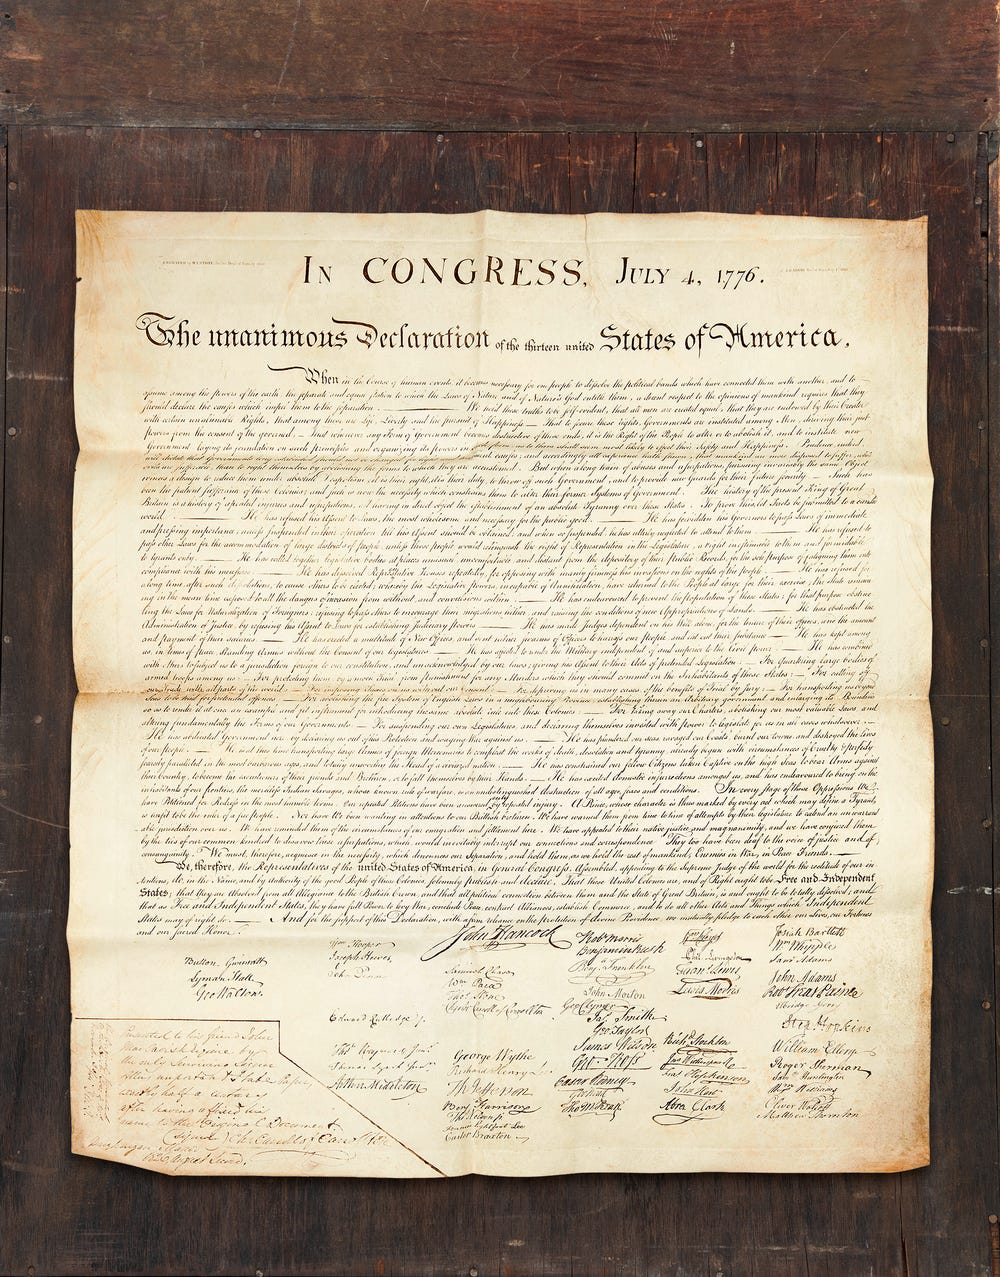 ENGRAVED by W.I.STONE
IN CONGRESS, JULY 4, 1776.
The unanimous Declaration of the thirteen united States of America,
When in the Course of human events, it becomes necessary for one people to dissolve the political bands which have connected them with another, and to
assume among the powers of the earth, the separate and equal station to which the Laws of Nature and of Nature's God entitle them, a decent respect to the opinions of mankind requires that they
should declare the causes which impel them to the separation. We hold these truths to be self-evident, that all men are created equal, that they are endowed by their Creator
with certain unalienable Rights, that among these are Life, Liberty and the pursuit of Happiness.— That to secure these rights, Governments are instituted among Men, deriving their just
powers from the consent of the governed,— That whenever any Form of Government becomes destructive of these ends, it is the Right of the People to alter or to abolish it, and to institute new
Government, laying its foundation on such principles and organizing its powers in such form, as to them shall seem most likely to effect their Safety and Happiness. Prudence, indeed,
will dictate that Governments long established should not be changed for light and transient causes; and accordingly all experience hath shewn, that mankind are more disposed to suffer, while
evils are sufferable, than to right themselves by abolishing the forms to which they are accustomed. But when a long train of abuses and usurpations, pursuing invariably the same Object
evinces a design to reduce them under absolute Despotism, it is their right, it is their duty, to throw off such Government, and to provide new Guards for their future security.— Such has
been the patient sufferance of these Colonies; and such is now the necessity which constrains them to alter their former Systems of Government. The history of the present King of Great
Britain is a history of repeated injuries and usurpations, all having in direct object the establishment of an absolute Tyranny over these States. To prove this, let Facts be submitted to a candid
world. He has refused his Assent to Laws, the most wholesome and necessary for the public good. He has forbidden his Governors to pass Laws of immediate
and pressing importance, unless suspended in their operation till his Assent should be obtained; and when so suspended, he has utterly neglected to attend to them. He has refused to
pass other Laws for the accommodation of large districts of people, unless those people would relinquish the right of Representation in the Legislature, a right inestimable to them and formidable
to tyrants only. He has called together legislative bodies at places unusual, uncomfortable, and distant from the depository of their Public Records, for the sole purpose of fatiguing them into
compliance with his measures. He has dissolved Representative Houses repeatedly, for opposing with manly firmness his invasions on the rights of the people. He has refused for
a long time, after such dissolutions, to cause others to be elected; whereby the Legislative powers, incapable of Annihilation, have returned to the People at large for their exercise; the State remain-
ing in the mean time exposed to all the dangers of invasion from without, and convulsions within. He has endeavoured to prevent the population of these States; for that purpose obstruc-
ting the Laws for Naturalization of Foreigners; refusing to pass others to encourage their migrations hither, and raising the conditions of new Appropriations of Lands. He has obstructed the
Administration of Justice, by refusing his Assent to Laws for establishing Judiciary powers. He has made Judges dependent on his Will alone, for the tenure of their offices, and the amount
and payment of their salaries. He has erected a multitude of New Offices, and sent hither swarms of Officers to harrass our people, and eat out their substance. He has kept among
us, in times of peace, Standing Armies without the Consent of our legislatures. He has affected to render the Military independent of and superior to the Civil power. He has combined
with others to subject us to a jurisdiction foreign to our constitution, and unacknowledged by our laws; giving his Assent to their Acts of pretended Legislation:— For Quartering large bodies of
armed troops among us:— For protecting them, by a mock Trial, from punishment for any Murders which they should commit on the Inhabitants of these States:— For cutting off
our Trade with all parts of the world:— For imposing Taxes on us without our Consent:— For depriving us in many cases, of the benefits of Trial by Jury:— For transporting us beyond
Seas to be tried for pretended offences— For abolishing the free System of English Laws in a neighbouring Province, establishing therein an Arbitrary government, and enlarging its Boundaries
so as to render it at once an example and fit instrument for introducing the same absolute rule into these Colonies:— For taking away our Charters, abolishing our most valuable Laws, and
altering fundamentally the Forms of our Governments:— For suspending our own Legislatures, and declaring themselves invested with power to legislate for us in all cases whatsoever.—
He has abdicated Government here, by declaring us out of his Protection and waging War against us.— He has plundered our seas, ravaged our Coasts, burnt our towns, and destroyed the lives
of our people.— He is at this time transporting large Armies of foreign Mercenaries to compleat the works of death, desolation and tyranny, already begun with circumstances of Cruelty & perfidy
scarcely paralleled in the most barbarous ages, and totally unworthy the Head of a civilized nation.— He has constrained our fellow Citizens taken Captive on the high Seas to bear Arms against
their Country, to become the executioners of their friends and Brethren, or to fall themselves by their Hands.— He has excited domestic insurrections amongst us, and has endeavoured to bring on the
inhabitants of our frontiers, the merciless Indian Savages, whose known rule of warfare, is an undistinguished destruction of all ages, sexes and conditions. In every stage of these Oppressions We
have Petitioned for Redress in the most humble terms: Our repeated Petitions have been answered only by repeated injury. A Prince, whose character is thus marked by every act which may define a Tyrant,
is unfit to be the ruler of a free people. Nor have We been wanting in attentions to our Brittish brethren. We have warned them from time to time of attempts by their legislature to extend an unwarrant-
able jurisdiction over us. We have reminded them of the circumstances of our emigration and settlement here. We have appealed to their native justice and magnanimity, and we have conjured them
by the ties of our common kindred to disavow these usurpations, which, would inevitably interrupt our connections and correspondence. They too have been deaf to the voice of justice and of
consanguinity. We must, therefore, acquiesce in the necessity, which denounces our Separation, and hold them, as we hold the rest of mankind, Enemies in War, in Peace Friends.—
We, therefore, the Representatives of the united States of America, in General Congress, Assembled, appealing to the Supreme Judge of the world for the rectitude of our in-
tentions, do, in the Name, and by Authority of the good People of these Colonies, solemnly publish and declare, That these United Colonies are, and of Right ought to be Free and Independent
States; that they are Absolved from all Allegiance to the British Crown, and that all political connection between them and the State of Great Britain, is and ought to be totally dissolved; and
that as Free and Independent States, they have full Power to levy War, conclude Peace, contract Alliances, establish Commerce, and to do all other Acts and Things which Independent
States may of right do.— And for the support of this Declaration, with a firm reliance on the protection of divine Providence, we mutually pledge to each other our Lives, our Fortunes
and our sacred Honor.
Button Gwinnett
Lyman Hall
Geo Walton.
Wm Hooper
Joseph Hewes,
John Penn
Edward Rutledge /.
Thos Heyward Junr.
Thomas Lynch Junr.
Arthur Middleton
John Hancock
Samuel Chase
Wm Paca
Thos Stone
Charles Carroll of Carrollton
George Wythe
Richard Henry Lee
Th Jefferson
Benj Harrison
Thos Nelson jr
Francis Lightfoot Lee
Carter Braxton
Robt Morris
Benjamin Rush
Benj. Franklin
John Morton
Geo Clymer
Jas. Smith
Geo. Taylor
James Wilson
Geo. Ross
Caesar Rodney
Geo Read
Tho M:Kean
Wm Floyd
Phil. Livingston
Frans. Lewis
Lewis Morris
Richd. Stockton
Jno Witherspoon
Fras. Hopkinson
John Hart
Abra Clark
Josiah Bartlett
Wm Whipple
Saml Adams
John Adams
Robt Treat Paine
Elbridge Gerry
Step. Hopkins
William Ellery
Roger Sherman
Saml Huntington
Wm Williams
Oliver Wolcott
Matthew Thornton
Presented to his friend John
by
the only surviving signer
of this important State Paper
half a century
after having affixed his
name to the original Document
(signed) Ch. Carroll of Carrollton
1826 August Second.